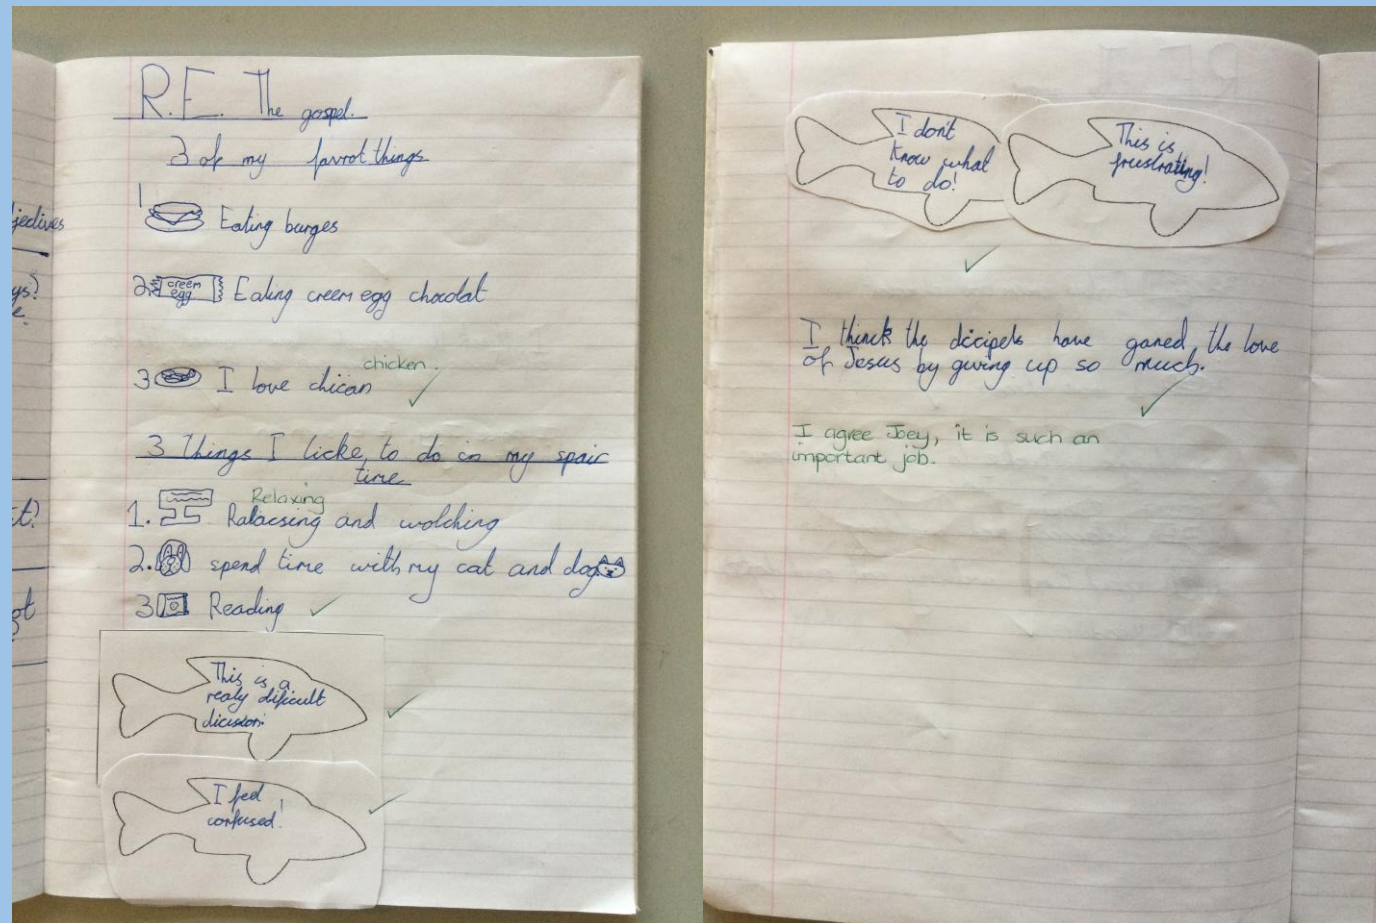 R.E. The gospel.
3 of my favrot things
1
Eating burges
2. creem
egg
Eating creem egg chocolat
chicken.
3 I love chican
3 Things I licke to do in my spair
time
Relaxing
1. Ralacsing and wolching
2. spend time with my cat and dog
3 Reading
This is a
realy dificult
dicision.
I feel
confused!
jectives
ys?
e.
t?
ot
I don't
know what
to do!
This is
frustrating!
I thinck the dicipels have ganed the love
of Jesus by giving up so much.
I agree Joey, it is such an
important job.